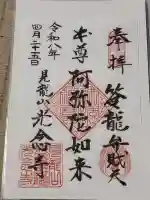 奉拝
笠龍弁財天
本尊
阿弥陀如来
令和八年
四月二十五日
見龍山光念寺